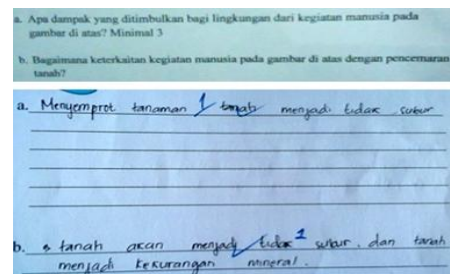 a. Apa dampak yang ditimbulkan bagi lingkungan dari kegiatan manusia pada
gambar di atas? Minimal 3
b. Bagaimana keterkaitan kegiatan manusia pada gambar di atas dengan pencemaran
tanah?
a. Menyemprot tanaman 1 tanah menjadi tidak subur
b. tanah akan menjadi tidak 1 subur, dan tanah
menjadi kekurangan mineral.